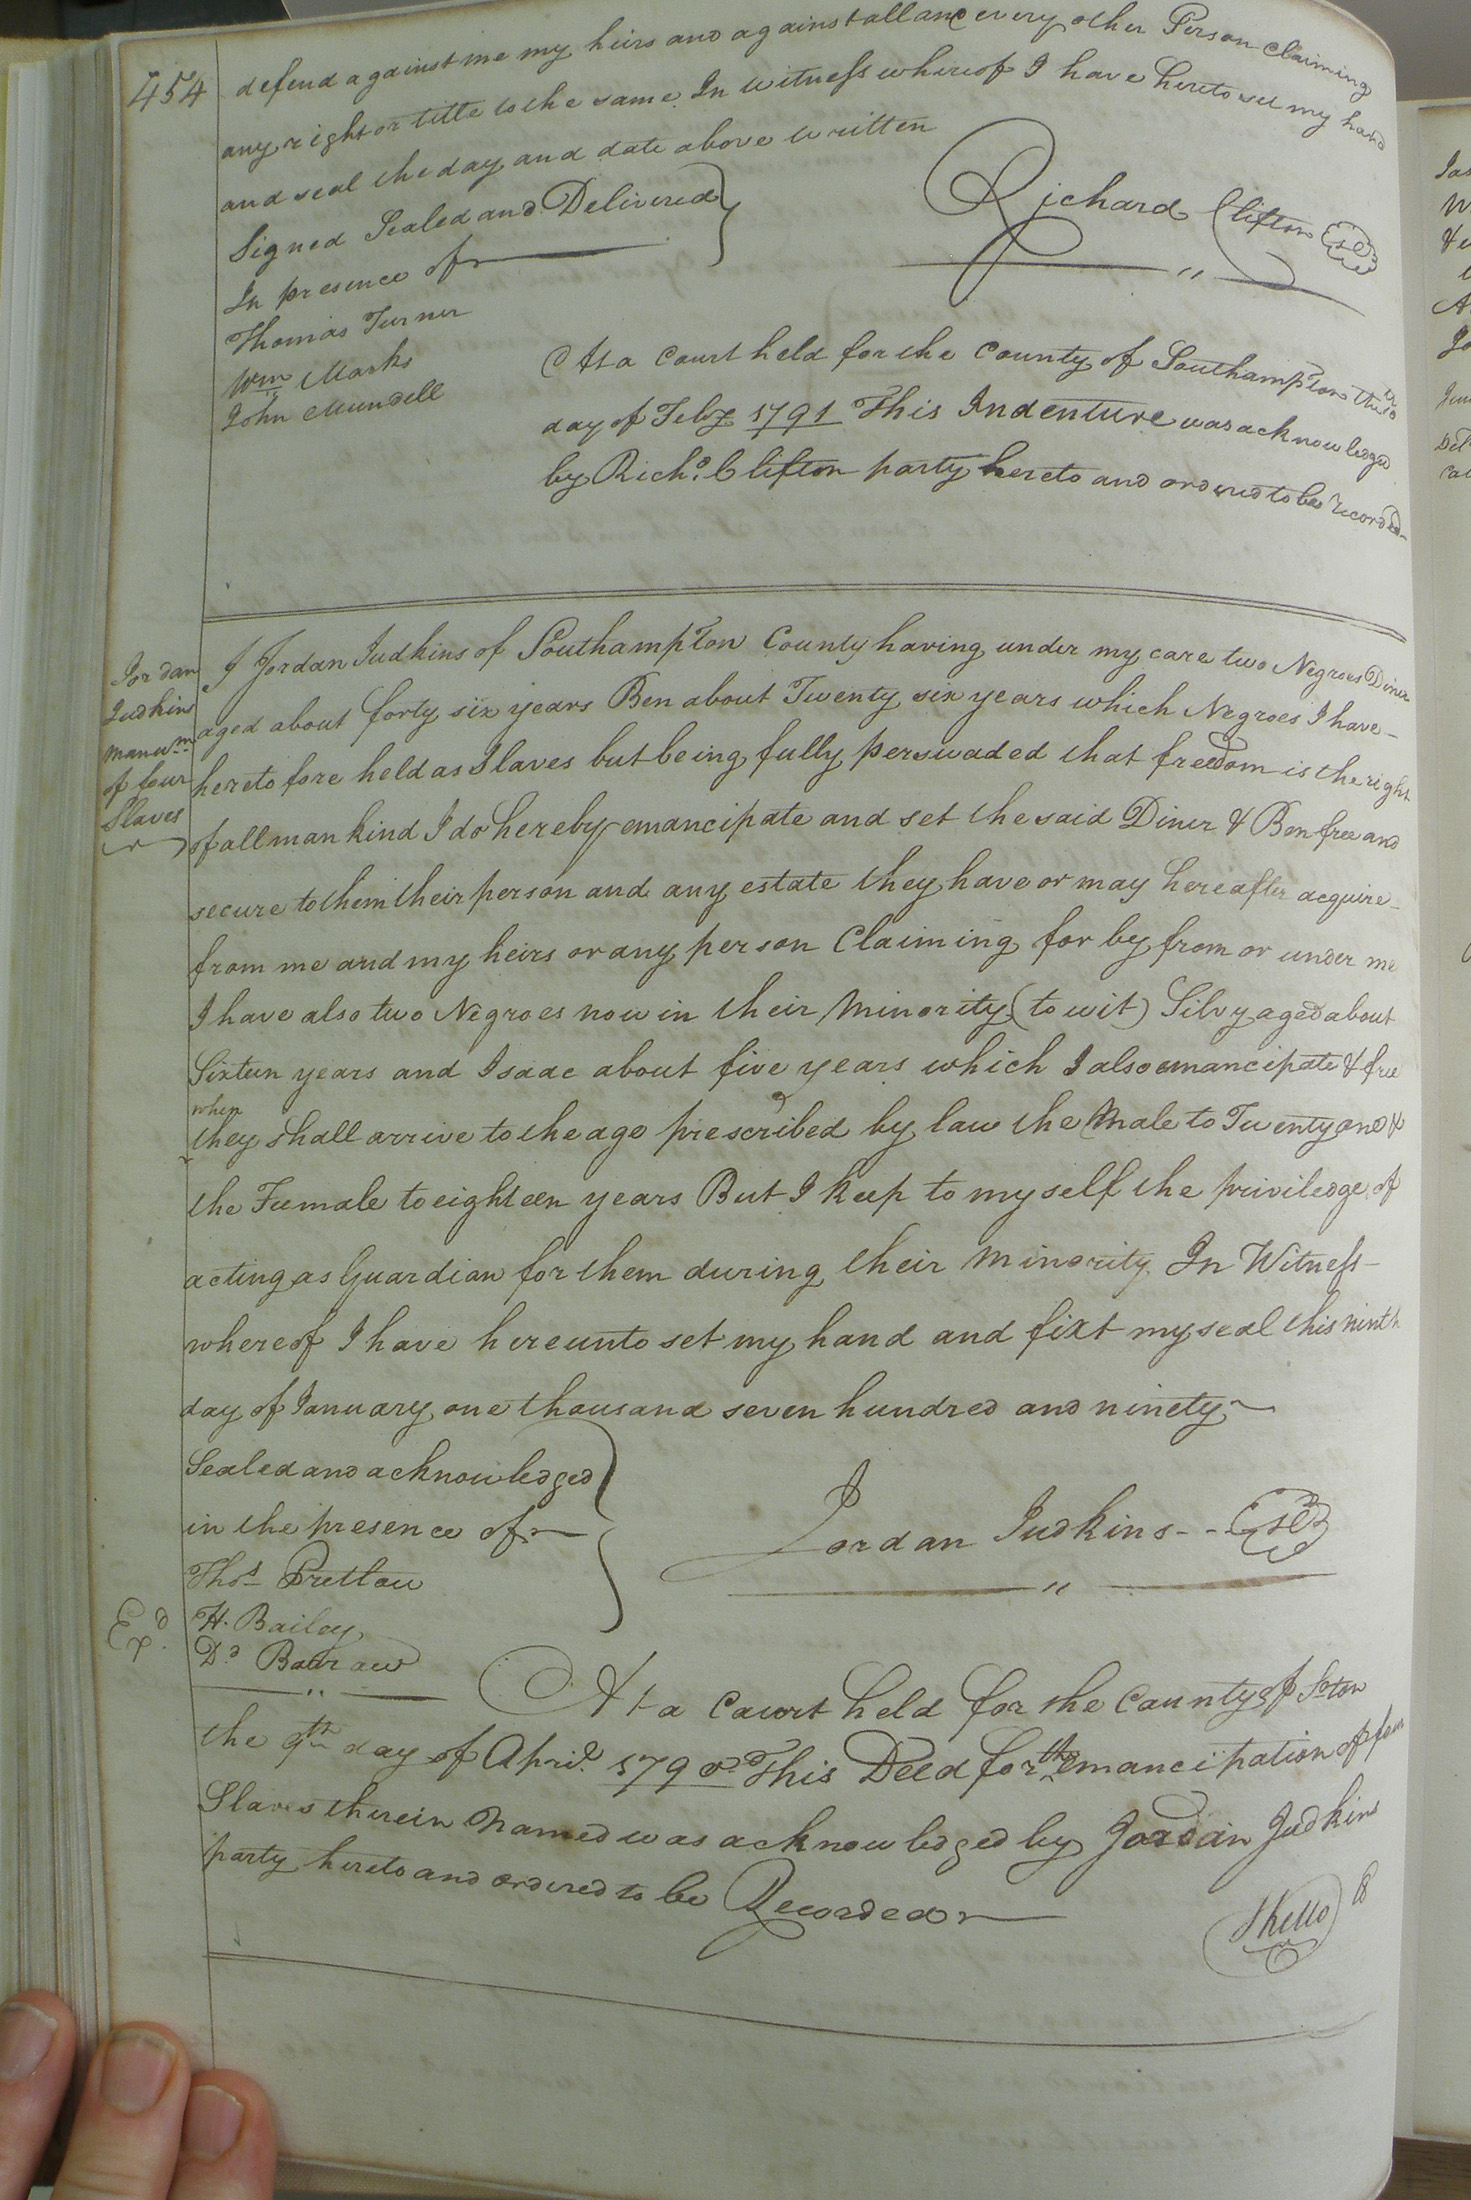 454
defend against me my heirs and against all and every other Person claiming
any right or title to the same. In witness whereof I have hereto set my hand
and seal the day and date above written
Signed Sealed and Delivered
In presence of
Richard Clifton
Thomas Turner
Wm Marks
John Mundell
At a Court held for the County of Southampton the
day of Feby 1791 This Indenture was acknowledged
by Richd. Clifton party hereto and ordered to be recorded
Jordan
Judkins
manumn
of four
Slaves
I Jordan Judkins of Southampton County having under my care two Negroes Diner
aged about forty six years Ben about Twenty six years which Negroes I have
heretofore held as Slaves but being fully perswaded that freedom is the right
of all mankind I do hereby emancipate and set the said Diner & Ben free and
secure to them their person and any estate they have or may hereafter acquire
from me and my heirs or any person Claiming for by from or under me
I have also two Negroes now in their Minority (to wit) Silvy aged about
Sixteen years and Isaac about five years which I also emancipate & free
when
they shall arrive to the age prescribed by law the Male to Twenty one &
the Feemale to eighteen years But I keep to myself the priviledge of
acting as Guardian for them during their Minority. In Witness
whereof I have hereunto set my hand and fixt my seal this ninth
day of January one thousand seven hundred and ninety
Sealed and acknowledged
in the presence of
Jordan Judkins
Thos Prettow
Exd.
H. Bailey
At a Court held for the County of Soton
the 9th day of April 1790. This Deed for the emancipation of four
Slaves therein Named was acknowledged by Jordan Judkins
party hereto and ordered to be Recorded